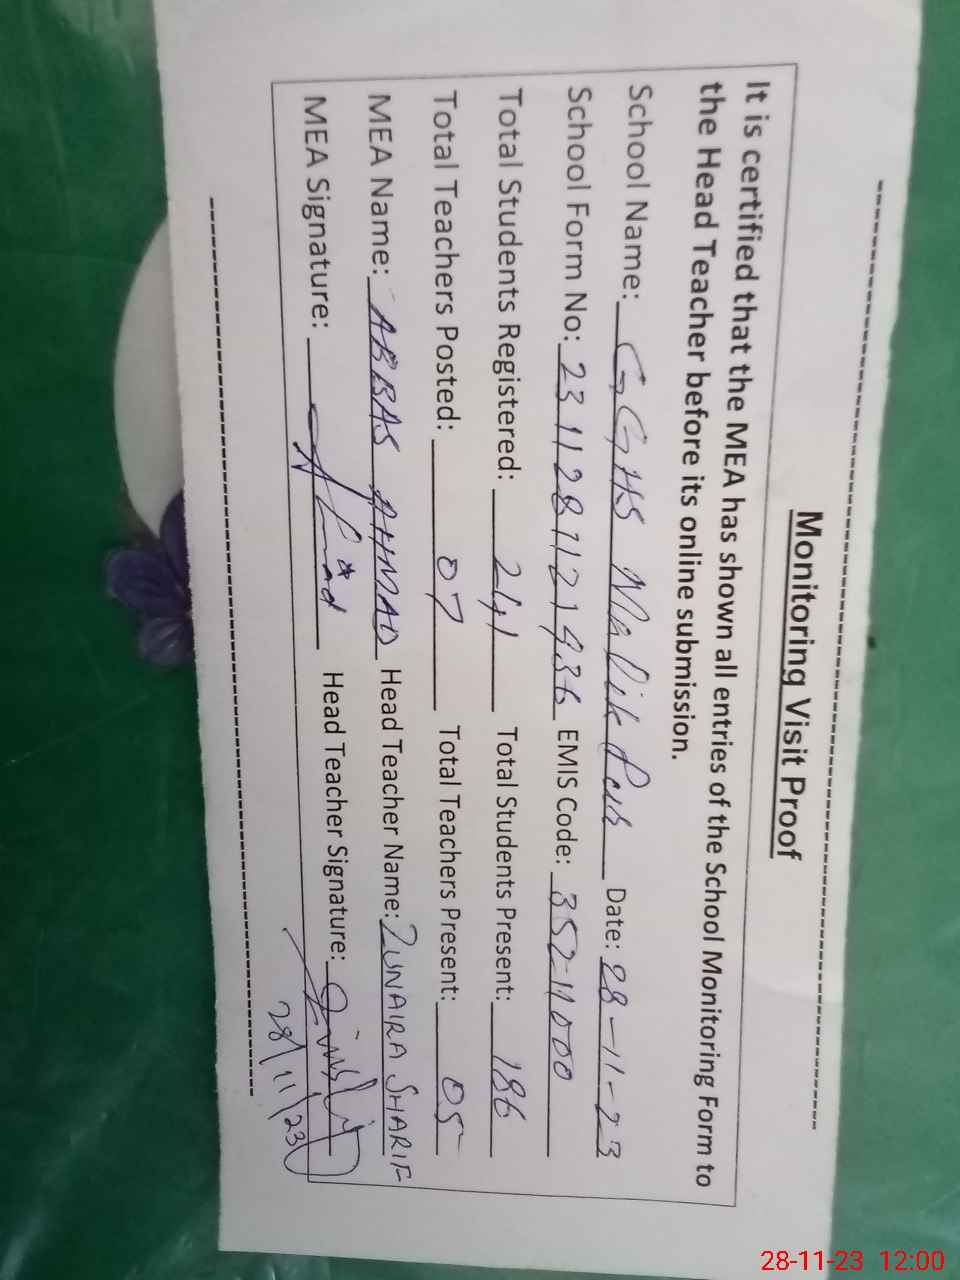 Monitoring Visit Proof
It is certified that the MEA has shown all entries of the School Monitoring Form to
the Head Teacher before its online submission.
School Name: GGHS Malik Date: 28-11-23
School Form No: EMIS Code: 352-11000
Total Students Registered: 241 Total Students Present: 186
Total Teachers Posted: 07 Total Teachers Present: 05
MEA Name: ABBAS AHMAD Head Teacher Name: ZUNAIRA SHARIF
MEA Signature: Head Teacher Signature:
28/11/23
28-11-23 12:00